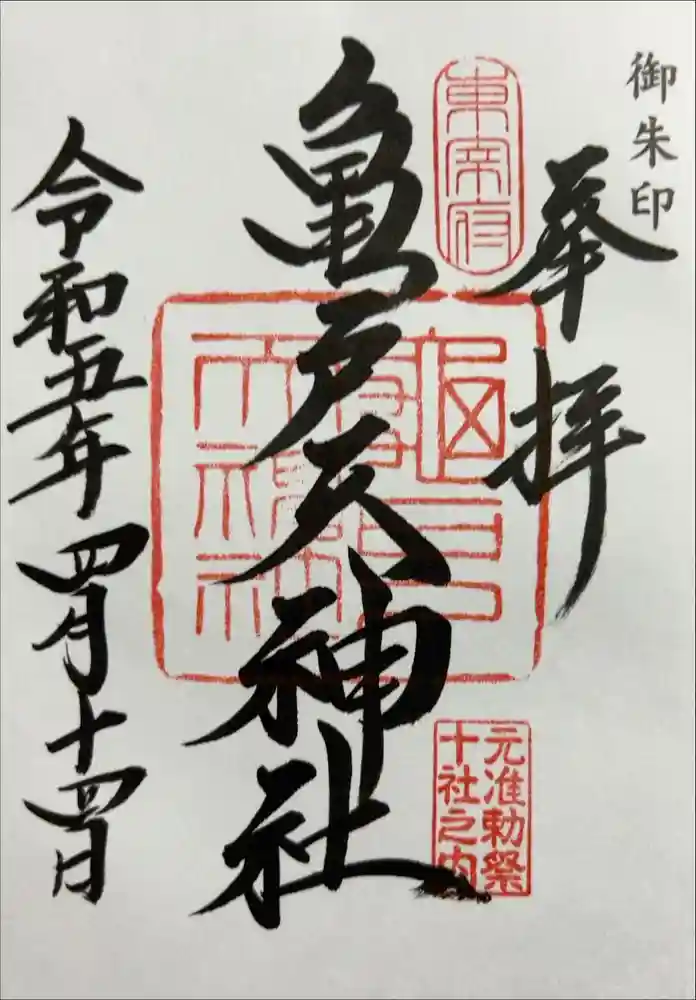 御朱印
奉拝
東宰府
亀戸天神社
元准勅祭
十社之内
令和五年四月十四日